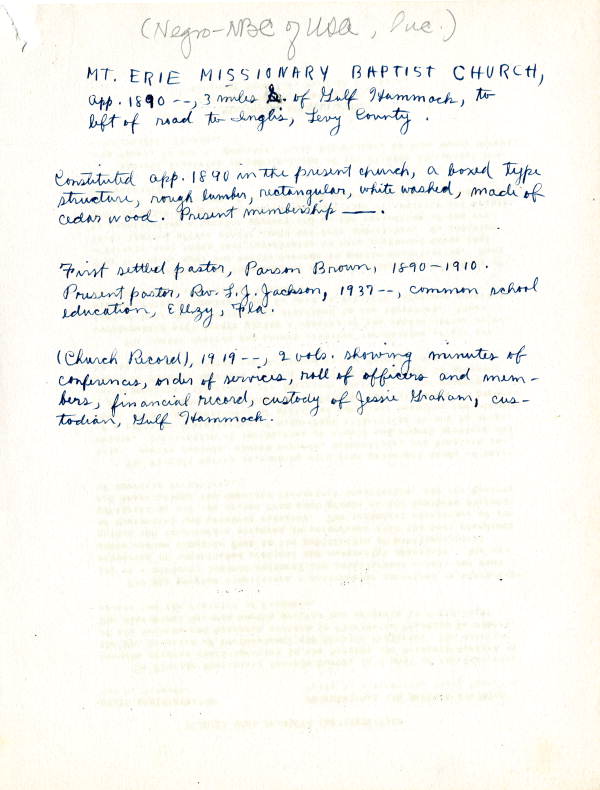 (Negro-NBC of USA, Inc.)
MT. ERIE MISSIONARY BAPTIST CHURCH,
app. 1890 --, 3 miles S. of Gulf Hammock, to
left of road to Inglis, Levy County.
Constituted app. 1890 in the present church, a boxed type
structure, rough lumber, rectangular, white washed, made of
cedar wood. Present membership ——.
First settled pastor, Parson Brown, 1890-1910.
Present pastor, Rev. L. J. Jackson, 1937--, common school
education, Ellzy, Fla.
(Church Record), 1919--, 2 vols. showing minutes of
conferences, order of services, roll of officers and mem-
bers, financial record, custody of Jessie Graham, cus-
todian, Gulf Hammock.